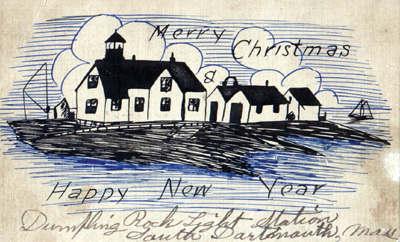 Merry
Christmas
&
Happy New Year
Dumpling Rock Light Station
South Dartmouth, Mass